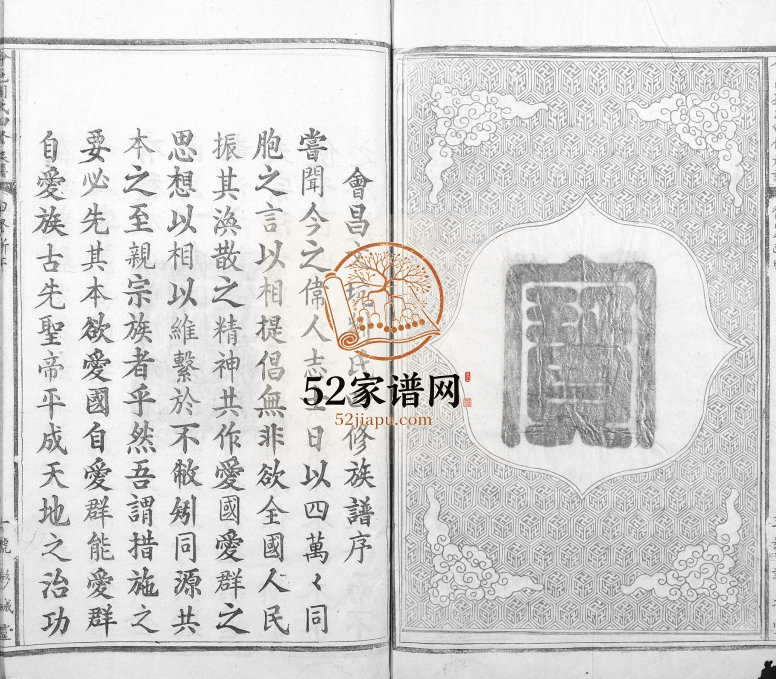 會昌氏修族譜序
嘗聞今之偉人志士日以四萬々同
胞之言以相提倡無非欲全國人民
振其渙散之精神共作愛國愛群之
思想以相以維繫於不敝矧同源共
本之至親宗族者乎然吾謂措施之
要必先其本欲愛國自愛群能愛群
自愛族古先聖帝平成天地之治功
52家谱网
52jiapu.com